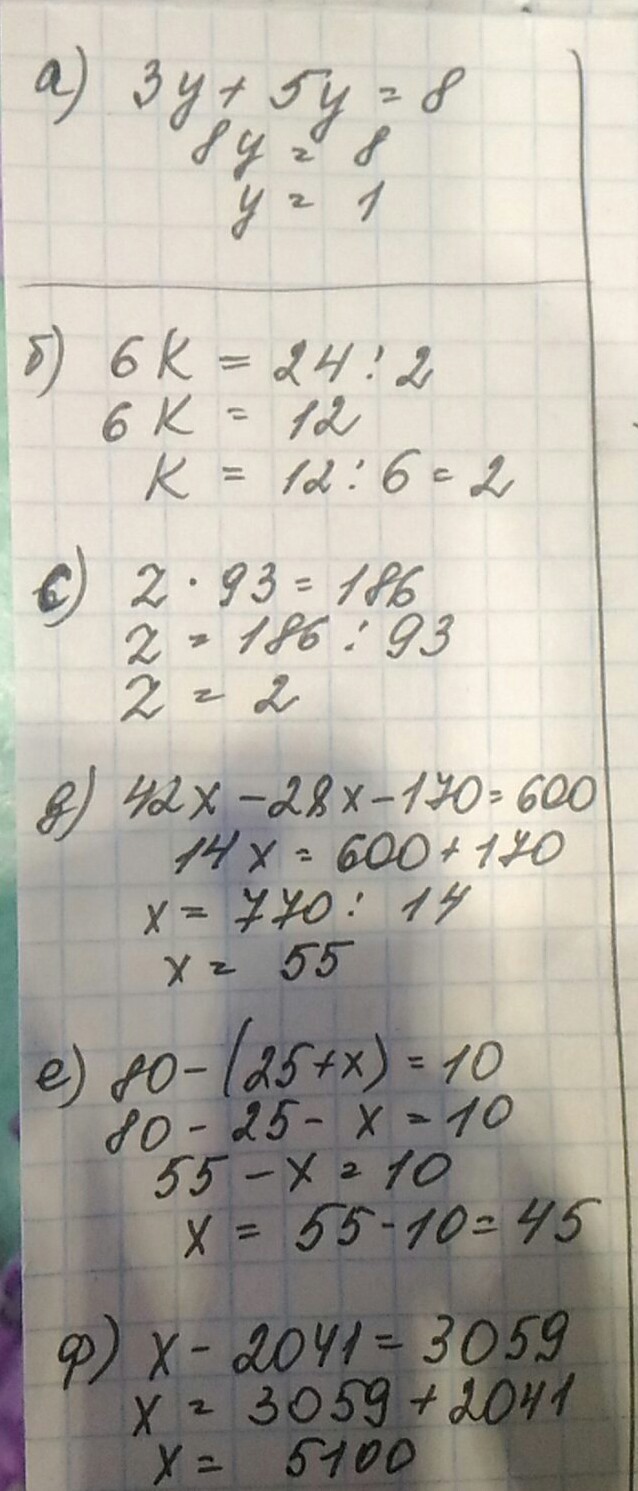 а) 3y + 5y = 8
8y = 8
y = 1
б) 6K = 24 : 2
6K = 12
K = 12 : 6 = 2
c) Z · 93 = 186
Z = 186 : 93
Z = 2
д) 42x - 28x - 170 = 600
14x = 600 + 170
x = 770 : 14
x = 55
е) 80 - (25 + x) = 10
80 - 25 - x = 10
55 - x = 10
x = 55 - 10 = 45
ф) x - 2041 = 3059
x = 3059 + 2041
x = 5100